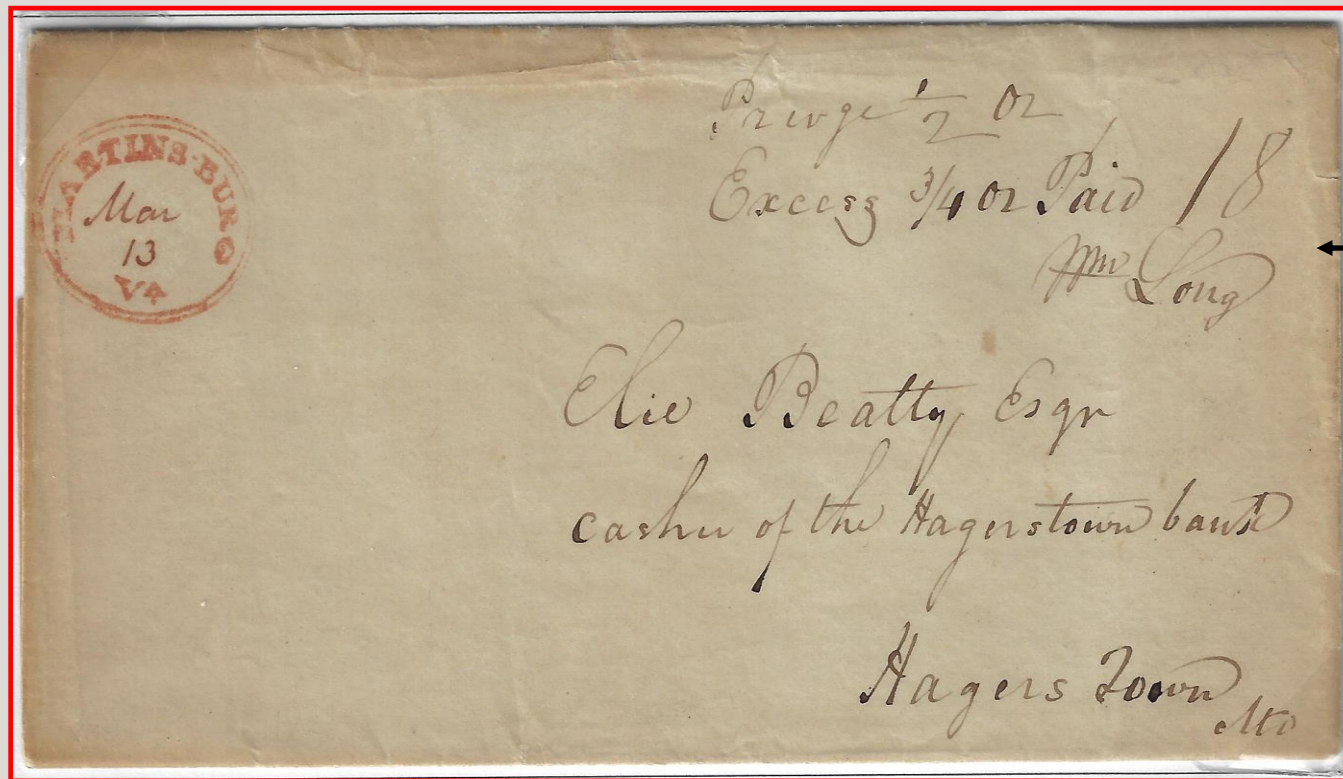 MARTINS-BURG
Mar
13
VA
Privge 1/2 oz
Excess 3/4 oz Paid 18
Wm Long
Elie Beatty Esqr
cashr of the Hagerstown bank
Hagers Town
Md